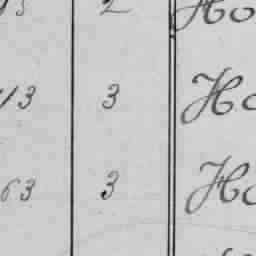 2 Ho
13 3 Ho
63 3 Ho